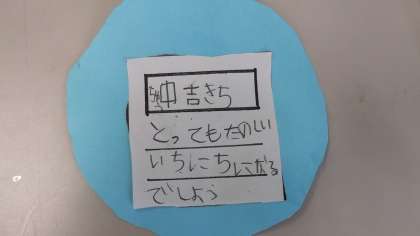 ちゅう中吉きち
とってもたのしい
いちにちになる
でしょう